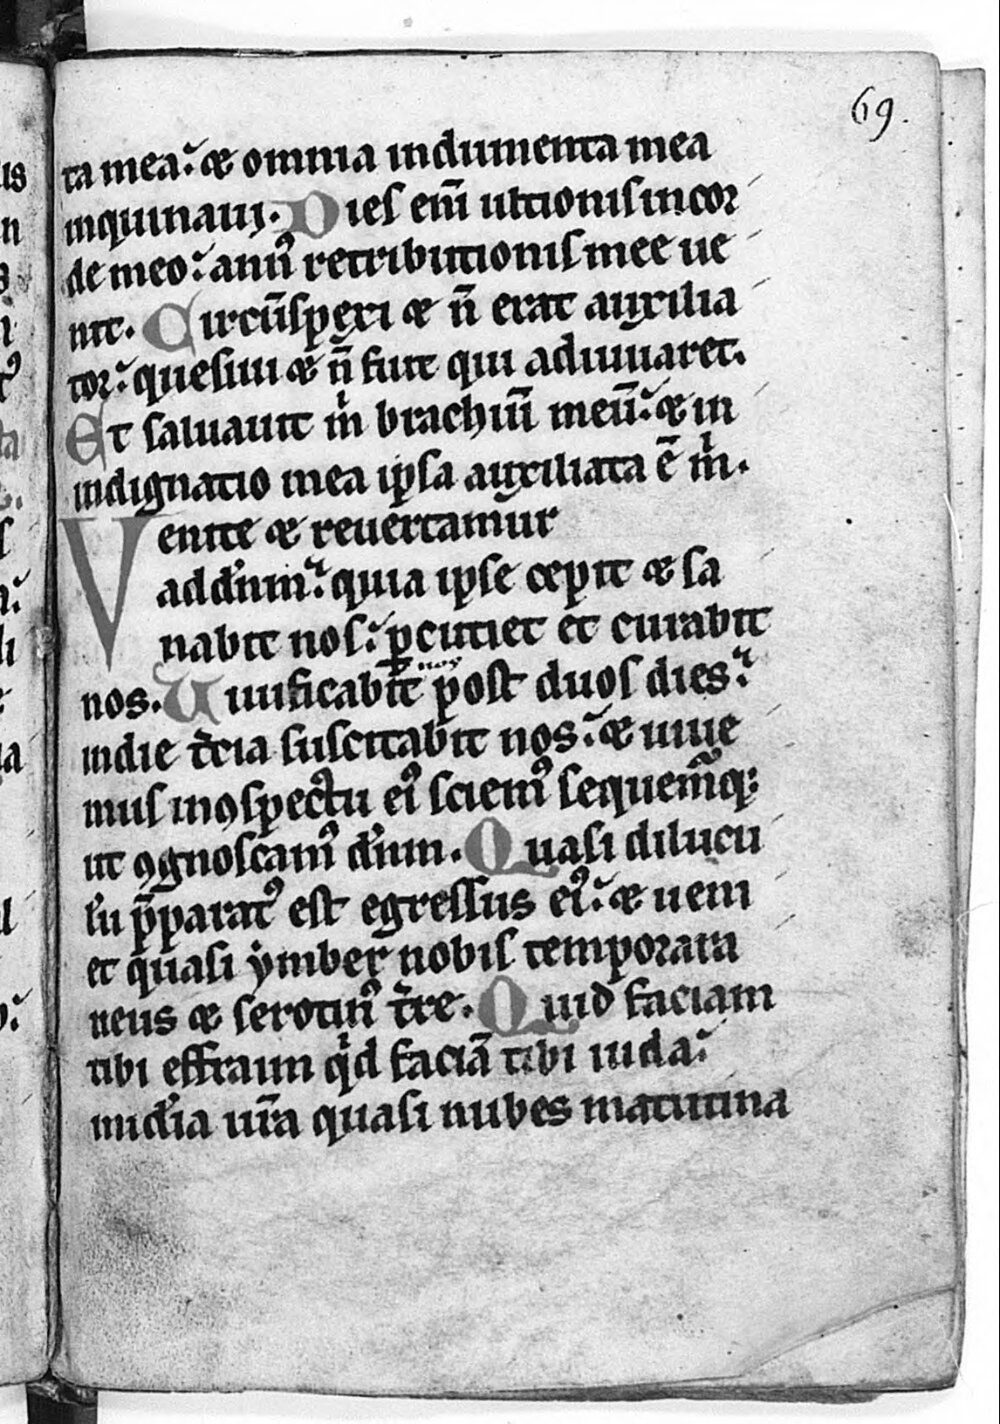 69.
ta mea: & omnia indumenta mea
inquinaui. Dies enī ultionis in cor
de meo: annꝰ retributionis mee ue
nit. Circūspexi & n̄ erat auxilia
tor: quesiui & n̄ fuit qui adiuuaret.
Et saluauit m̍ brachiū meū: & in
indignatio mea ipsa auxiliata ē m̍.
Venite & reuertamur
ad dn̄m: quia ipse cepit & sa
nabit nos: ꝑcutiet et curabit
nos
nos. Uiuificabit post duos dies:
in die t̄cia suscitabit nos: & uiue
mus in ꝯspectu eiꝰ sciemꝰ sequem̄q;
ut ꝯgnoscamꝰ dn̄m. Quasi dilucu
lū p̄paratꝰ est egressus eiꝰ: & ueni
et quasi ymber nobis temporara
neus & serotinꝰ t̄re. Quid faciam
tibi effraim qͥd faciā tibi iuda:
mīd̓ia ur̄a quasi nubes matutina